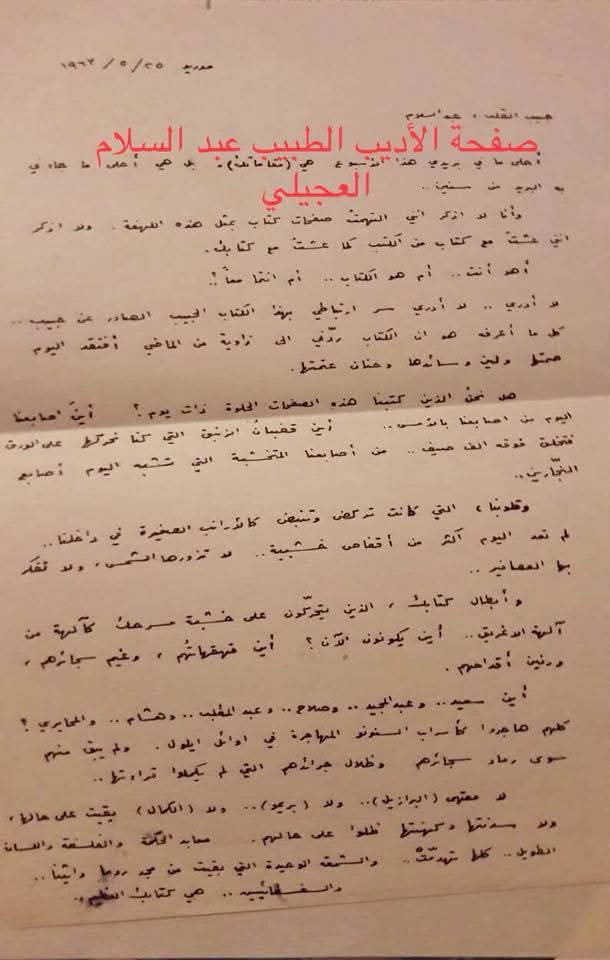 مدريد ٢٥ / ٥ / ١٩٦٣
حبيب القلب، عبد السلام
صفحة الأديب الطبيب عبد السلام
أحلى ما في بريدي هذا الأسبوع هي (مقاماتك). بل هي أحلى ما جاءني
العجيلي
به البريد من سنين..
وأنا لا اذكر انني التهمت صفحات كتاب بمثل هذه اللهفة. ولا اذكر
انني عشت مع كتاب من الكتب كما عشت مع كتابك.
أهو أنت.. أم هو الكتاب.. أم انتما معاً؟!
لا أدري.. لا أدري سر ارتباطي بهذا الكتاب الحبيب الصادر عن حبيب..
كل ما أعرفه هو ان الكتاب ردّني الى زاوية من الماضي أفتقد اليوم
صمتها ولين وسائدها وحنان عتمتها.
هل نحن الذين كتبنا هذه الصفحات الحلوة ذات يوم؟ أين اصابعنا
اليوم من اصابعنا بالأمس.. أين قضبان الزنبق التي كنا نحركها على الورق
فتخلق فوقه الف صيف.. من أصابعنا المتخشبة التي تشبه اليوم أصابع
النجّارين..
وقلوبنا، التي كانت تركض وتنبض كالأرانب الصغيرة في داخلنا..
لم تعد اليوم أكثر من أقفاص خشبية.. لا تزورها الشمس، ولا تفكر
بها العصافير..
وأبطال كتابك، الذين يتحركون على خشبة مسرحك كآلهة من
آلهة الاغريق.. أين يكونون الآن؟ أين قهقهاتهم، وغيم سجائرهم،
ورنين أقداحهم.
أين سعيد.. وعبد المجيد.. وصلاح.. وعبد المطلب.. وهشام.. والمحايري؟
كلهم هاجروا كأسراب السنونو المهاجرة في اوائل ايلول. ولم يبق منهم
سوى رماد سجائرهم وظلال جرائدهم التي لم يكملوا قراءتها..
لا مقهى (البرازيل).. ولا (بريمو).. ولا (الكمال) بقيت على حالها،
ولا سدنتها وكهنتها ظلوا على حالهم. معابد الحكمة والفلسفة واللسان
الطويل.. كلها تهدمت.. والشمعة الوحيدة التي بقيت من مجد روما واثينا..
.. هي كتابك العظيم.